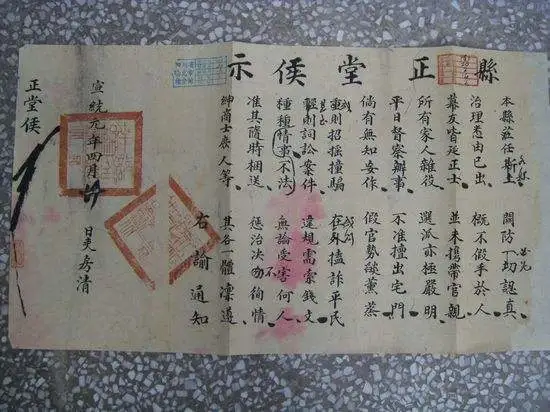 縣正堂侯示
本縣蒞任斯土 關防一切認真
治理悉由己出 概不假手於人
幕友皆延正士 並未攜帶官親
所有家人雜役 選派亦極嚴明
平日督察辦事 不准擅出宅門
倘有無知妄作 假官勢燄薰蒸
重則招搖撞騙 在外搕詐平民
輕則詞訟案件 違規需索錢文
種種情事不法 無論受害何人
准其隨時捆送 懲治決不徇情
紳商士庶人等 其各一體凜遵
右諭通知
宣統元年四月 日
正堂侯